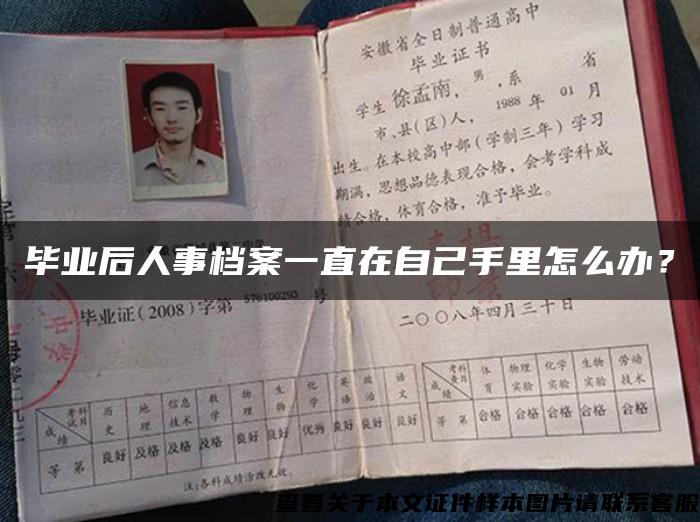 安徽省全日制普通高中
毕业证书
学生徐孟南，男，系 省
市、县(区)人，1988年01月
出生。在本校高中部（学制三年）学习
期满，思想品德表现合格，会考学科成
绩合格，体育合格，准予毕业。
毕业后人事档案一直在自己手里怎么办？
毕业证(2008)字第576100293号
二〇〇八年四月三十日
考试科目 历史 地理 信息技术 数学 物理 生物 化学 英语 政治 语文
成绩
等第 良好 及格 及格 及格 良好 良好 优秀 良好 良好 良好
注:各科成绩涂改无效。
考查科目 体育 物理实验 化学实验 生物实验 劳动技术
成绩
等第 合格 合格 合格 合格 合格
查看关于本文证件样本图片请联系客服